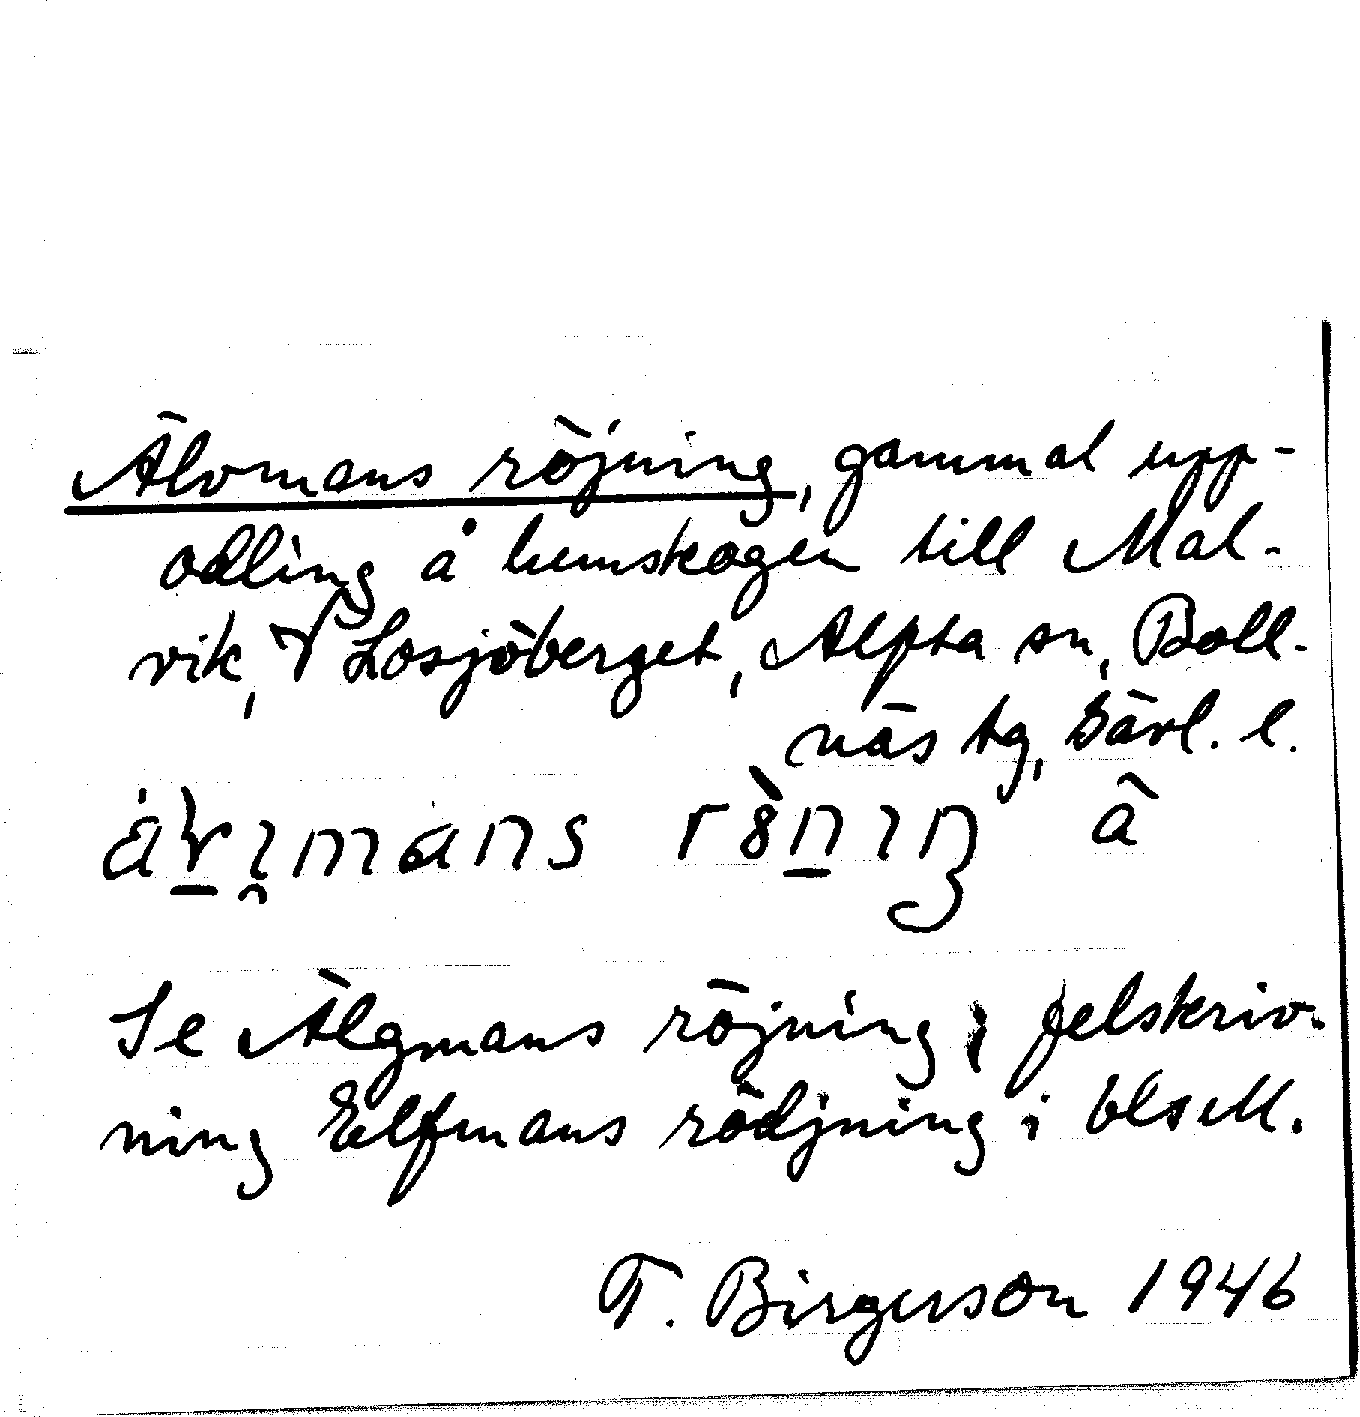 Älvmans röjning, gammal upp-
odling å hemskogen till Mal-
vik, V Losjöberget, Alfta sn, Boll-
näs tg, Gävl. l.
röning â
Se Älgmans röjning; felskriv-
ning Elfmans rödjning i blsM.
T. Birgerson 1946